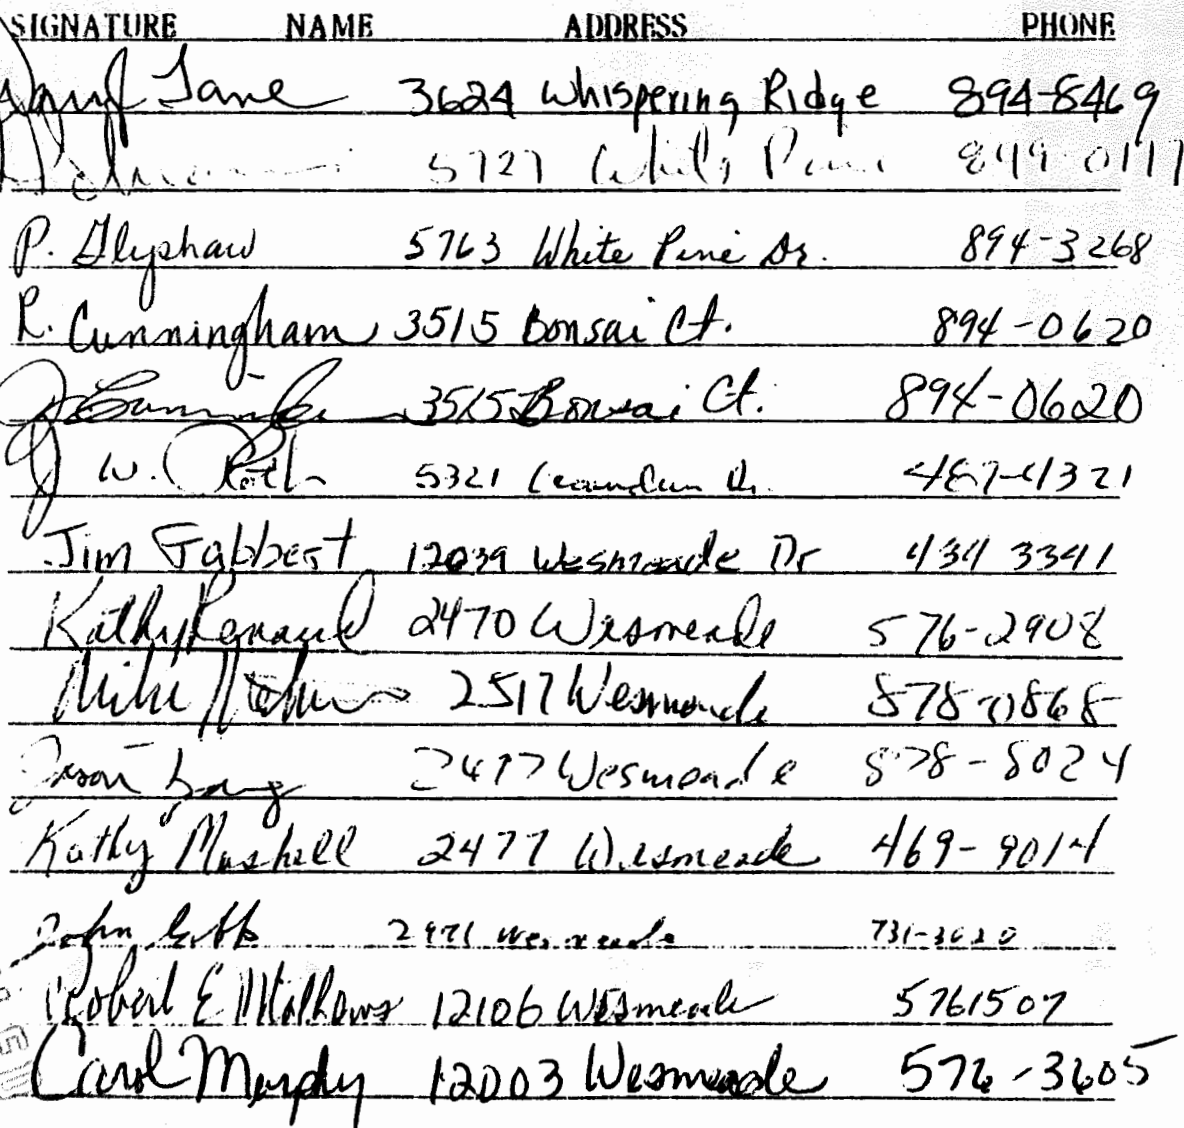 SIGNATURE NAME ADDRESS PHONE
Lane 3624 Whispering Ridge 894-8469
5727 White Pine
P. Glyshaw 5763 White Pine Dr. 894-3268
R. Cunningham 3515 Bonsai Ct. 894-0620
J. 3515 Bonsai Ct. 894-0620
J W. Roth 5321 Dr. 487-4321
Jim Gabbert 12039 Wesmeade Dr 434 3341
Kathy Renaud 2470 Wesmeade 576-2908
Mike 2517 Wesmeade 878-0868
Jason Wesmeade 878-8024
Kathy Mashell 2477 Wesmeade 469-9014
John 2971 Wesmeade 731-3020
Robert E Mathews 12106 Wesmeade 5761507
Carol Murphy 12003 Wesmeade 576-3605